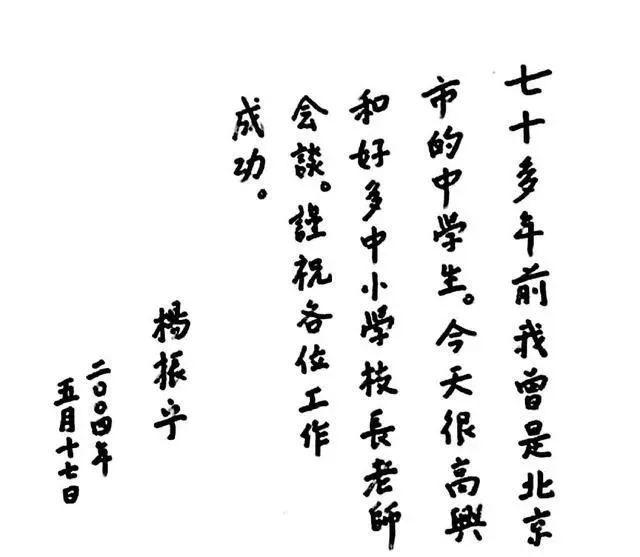 七十多年前我曾是北京
市的中學生。今天很高興
和好多中小学校長老師
会談。謹祝各位工作
成功。
楊振宁
二〇〇四年
五月十七日